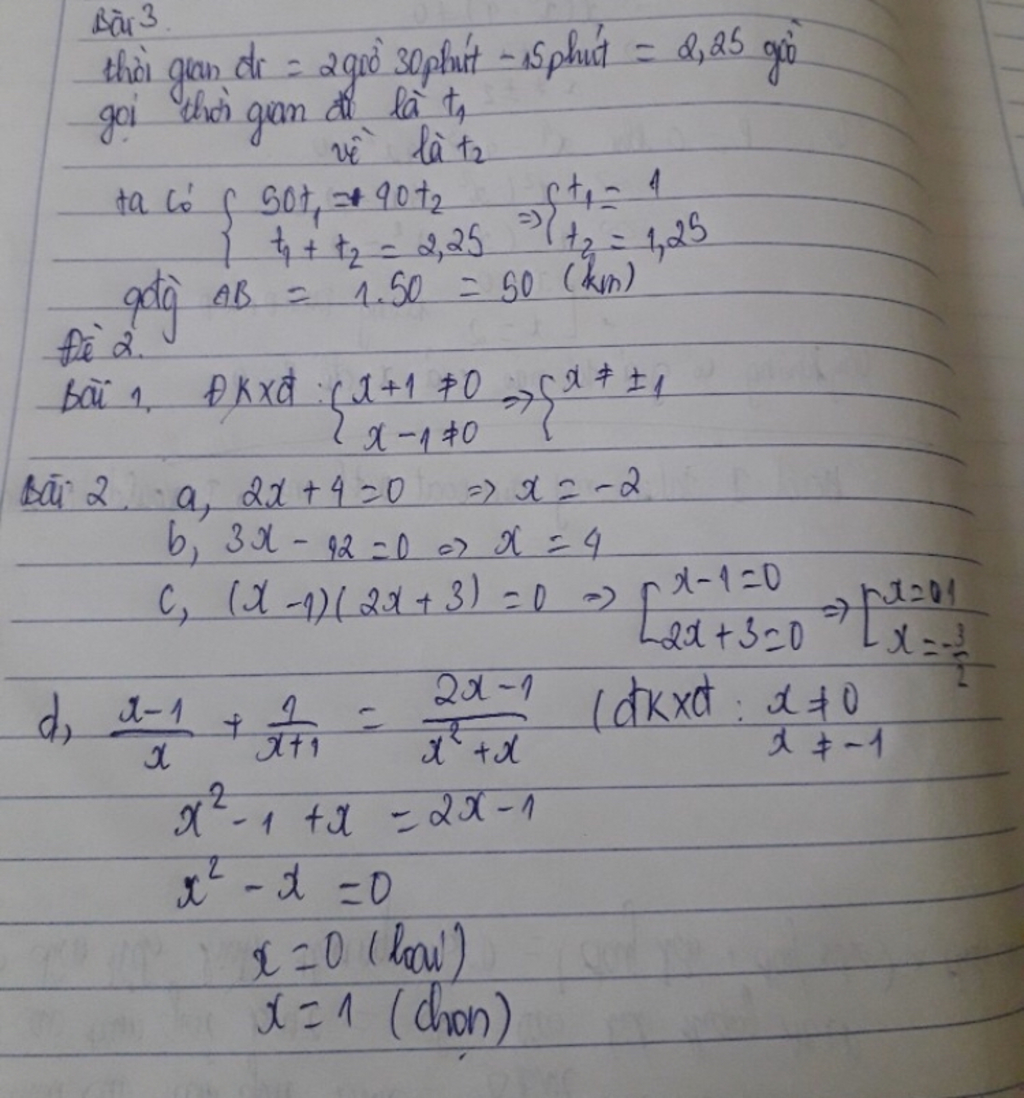 Bài 3.
thời gian đi = 2 giờ 30 phút - 15 phút = 2,25 giờ
gọi thời gian đi là t₁
về là t₂
ta có { 50t₁ = 40t₂ => { t₁ = 1
t₁ + t₂ = 2,25 t₂ = 1,25
qđg AB = 1.50 = 50 (km)
Đề 2.
Bài 1. ĐKXĐ : { x+1 ≠ 0 => { x ≠ ±1
x - 1 ≠ 0
Bài 2. a, 2x + 4 = 0 => x = -2
b, 3x - 12 = 0 => x = 4
c, (x - 1)(2x + 3) = 0 => [ x - 1 = 0 => [ x = 1
2x + 3 = 0 x = -3/2
d, (x-1)/x + 1/(x+1) = (2x-1)/(x²+x) (đkxđ : x ≠ 0
x ≠ -1
x² - 1 + x = 2x - 1
x² - x = 0
x = 0 (loại)
x = 1 (chọn)